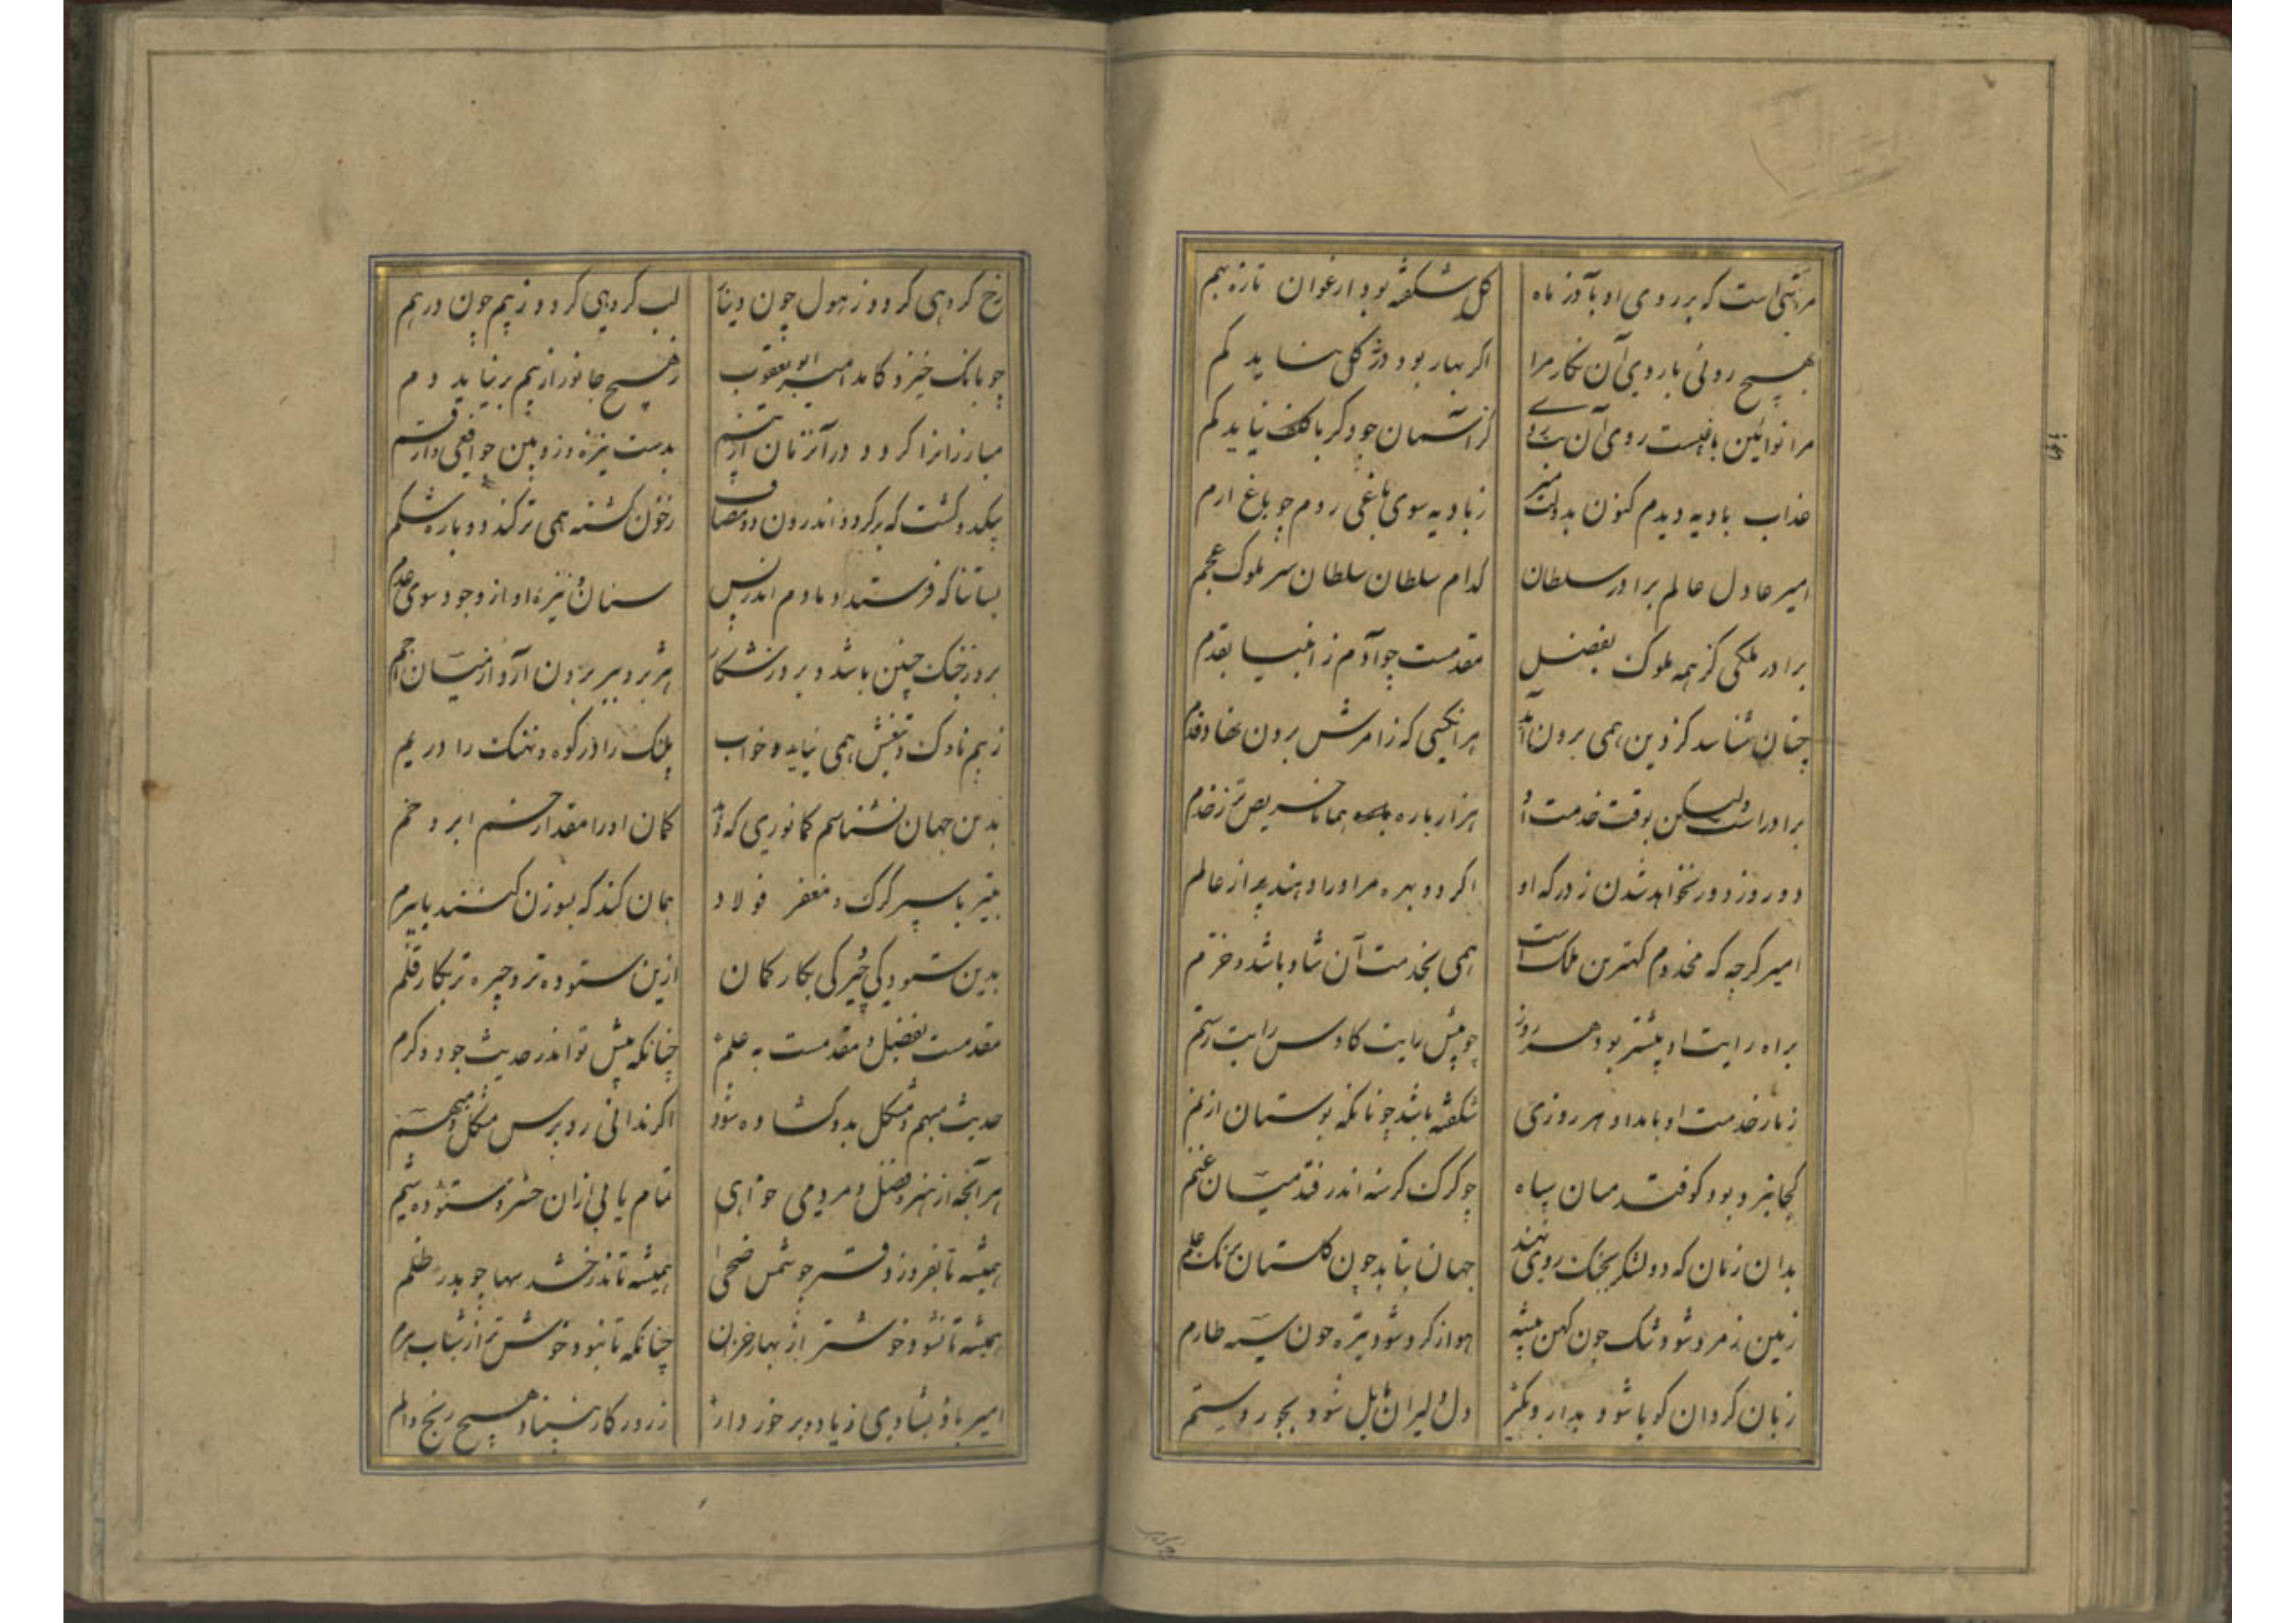 مرا بتی است که بر روی او بآذر ماه
گل شکفته بود ارغوان تازه بهم
بهیچ روئی با روی آن نکار مرا
اکر بهار بود در کلی نباید کم
مرا نوائین باغیست روی آن
کز آسمان چو دکر باغ نباید کم
عذاب بادیه دیدم کنون بدولت میر
ز بادیه سوی باغی روم چو باغ ارم
امیر عادل عالم برادر سلطان
کدام سلطان سلطان سر ملوک عجم
برادر ملکی کز همه ملوک بفضل
مقدمست چو آدم ز انبیا بقدم
چنان شناسد کز دین همی برون آید
هر انکسی که ز امرش برون نهاد قدم
برادراست ولیکن بوقت خدمت او
هزار باره همانا حریص تر ز خدم
دو روز دور نخواهد شدن ز درکه او
اکر دو بهره مر او را دهند از عالم
امیر کرچه که مخدوم کهترین ملک است
همی بخدمت آن شاد باشد و خرم
براه رایت او پیشتر بود هر روز
چو پیش رایت کاوس رایت رستم
ز بار خدمت او بامداد هر روزی
شکفته باشد چونانکه بوستان از نم
کجا نبرد بود کوفتد میان سپاه
چو کرک کرسنه اندر فتد میان غنم
بدان زمان که دو لشکر بجنک روی نهند
جهان نماید چون کلستان ز رنک علم
زمین ز مرد شود تنک چون کهن بیشه
هوا ز کرد شود تیره چون سیه طارم
زبان کردان کویا شود بدار و بکیر
دل دلیران مایل شود بجور و ستم
رخ کروهی کردد ز هول چون دینار
لب کروهی کردد ز بیم چون درهم
چو بانک خیزد کامد امیر ابو یعقوب
ز هیچ جانور از بیم برنیاید دم
مبارزانرا کردد در آنزمان از بیم
بدست نیزه و زوبین چو افعی و ارقم
بیکدو کشت که برکردد اندرون دو مصاف
ز خون کشته همی ترکند دوباره شکم
بسا تنا که فرستد او مادم اندر پس
سنان نیزه او از وجود سوی عدم
بروز جنک چنین باشد و بروز شکار
هژبر و ببر برون آرد از میان اجم
ز بیم ناوک و تیغش همی نیاید خواب
پلنک را در کوه و نهنک را در یم
بدین جهان نشناسم کمانوری که دهد
کمان او را مقدار خم ابرو خم
بتیر با سپر کرک و مغفر فولاد
همان کند که بسوزن کنند با بیرم
بدین ستودکی چیرکی بکار کمان
ازین ستوده تر و چیره تر بکار قلم
مقدمست بفضل و مقدمست به علم
چنانکه پیش تو اندر حدیث جود و کرم
حدیث مبهم و مشکل بدو کشاده شود
اکر ندانی رو برس مشکل و مبهم
هر آنچه از هنر و فضل و مردمی خواهی
تمام یابی ازان خسرو ستوده شیم
همیشه تا بفروزد قمر چو شمس ضحی
همیشه تا ندرخشد سها چو بدر ظلم
همیشه تا نشود خوشتر از بهار خزان
چنانکه تا نبود خوشتر از شباب هرم
امیر باد بشادی زیاد و برخوردار
ز روزکار مبیناد هیچ رنج و الم